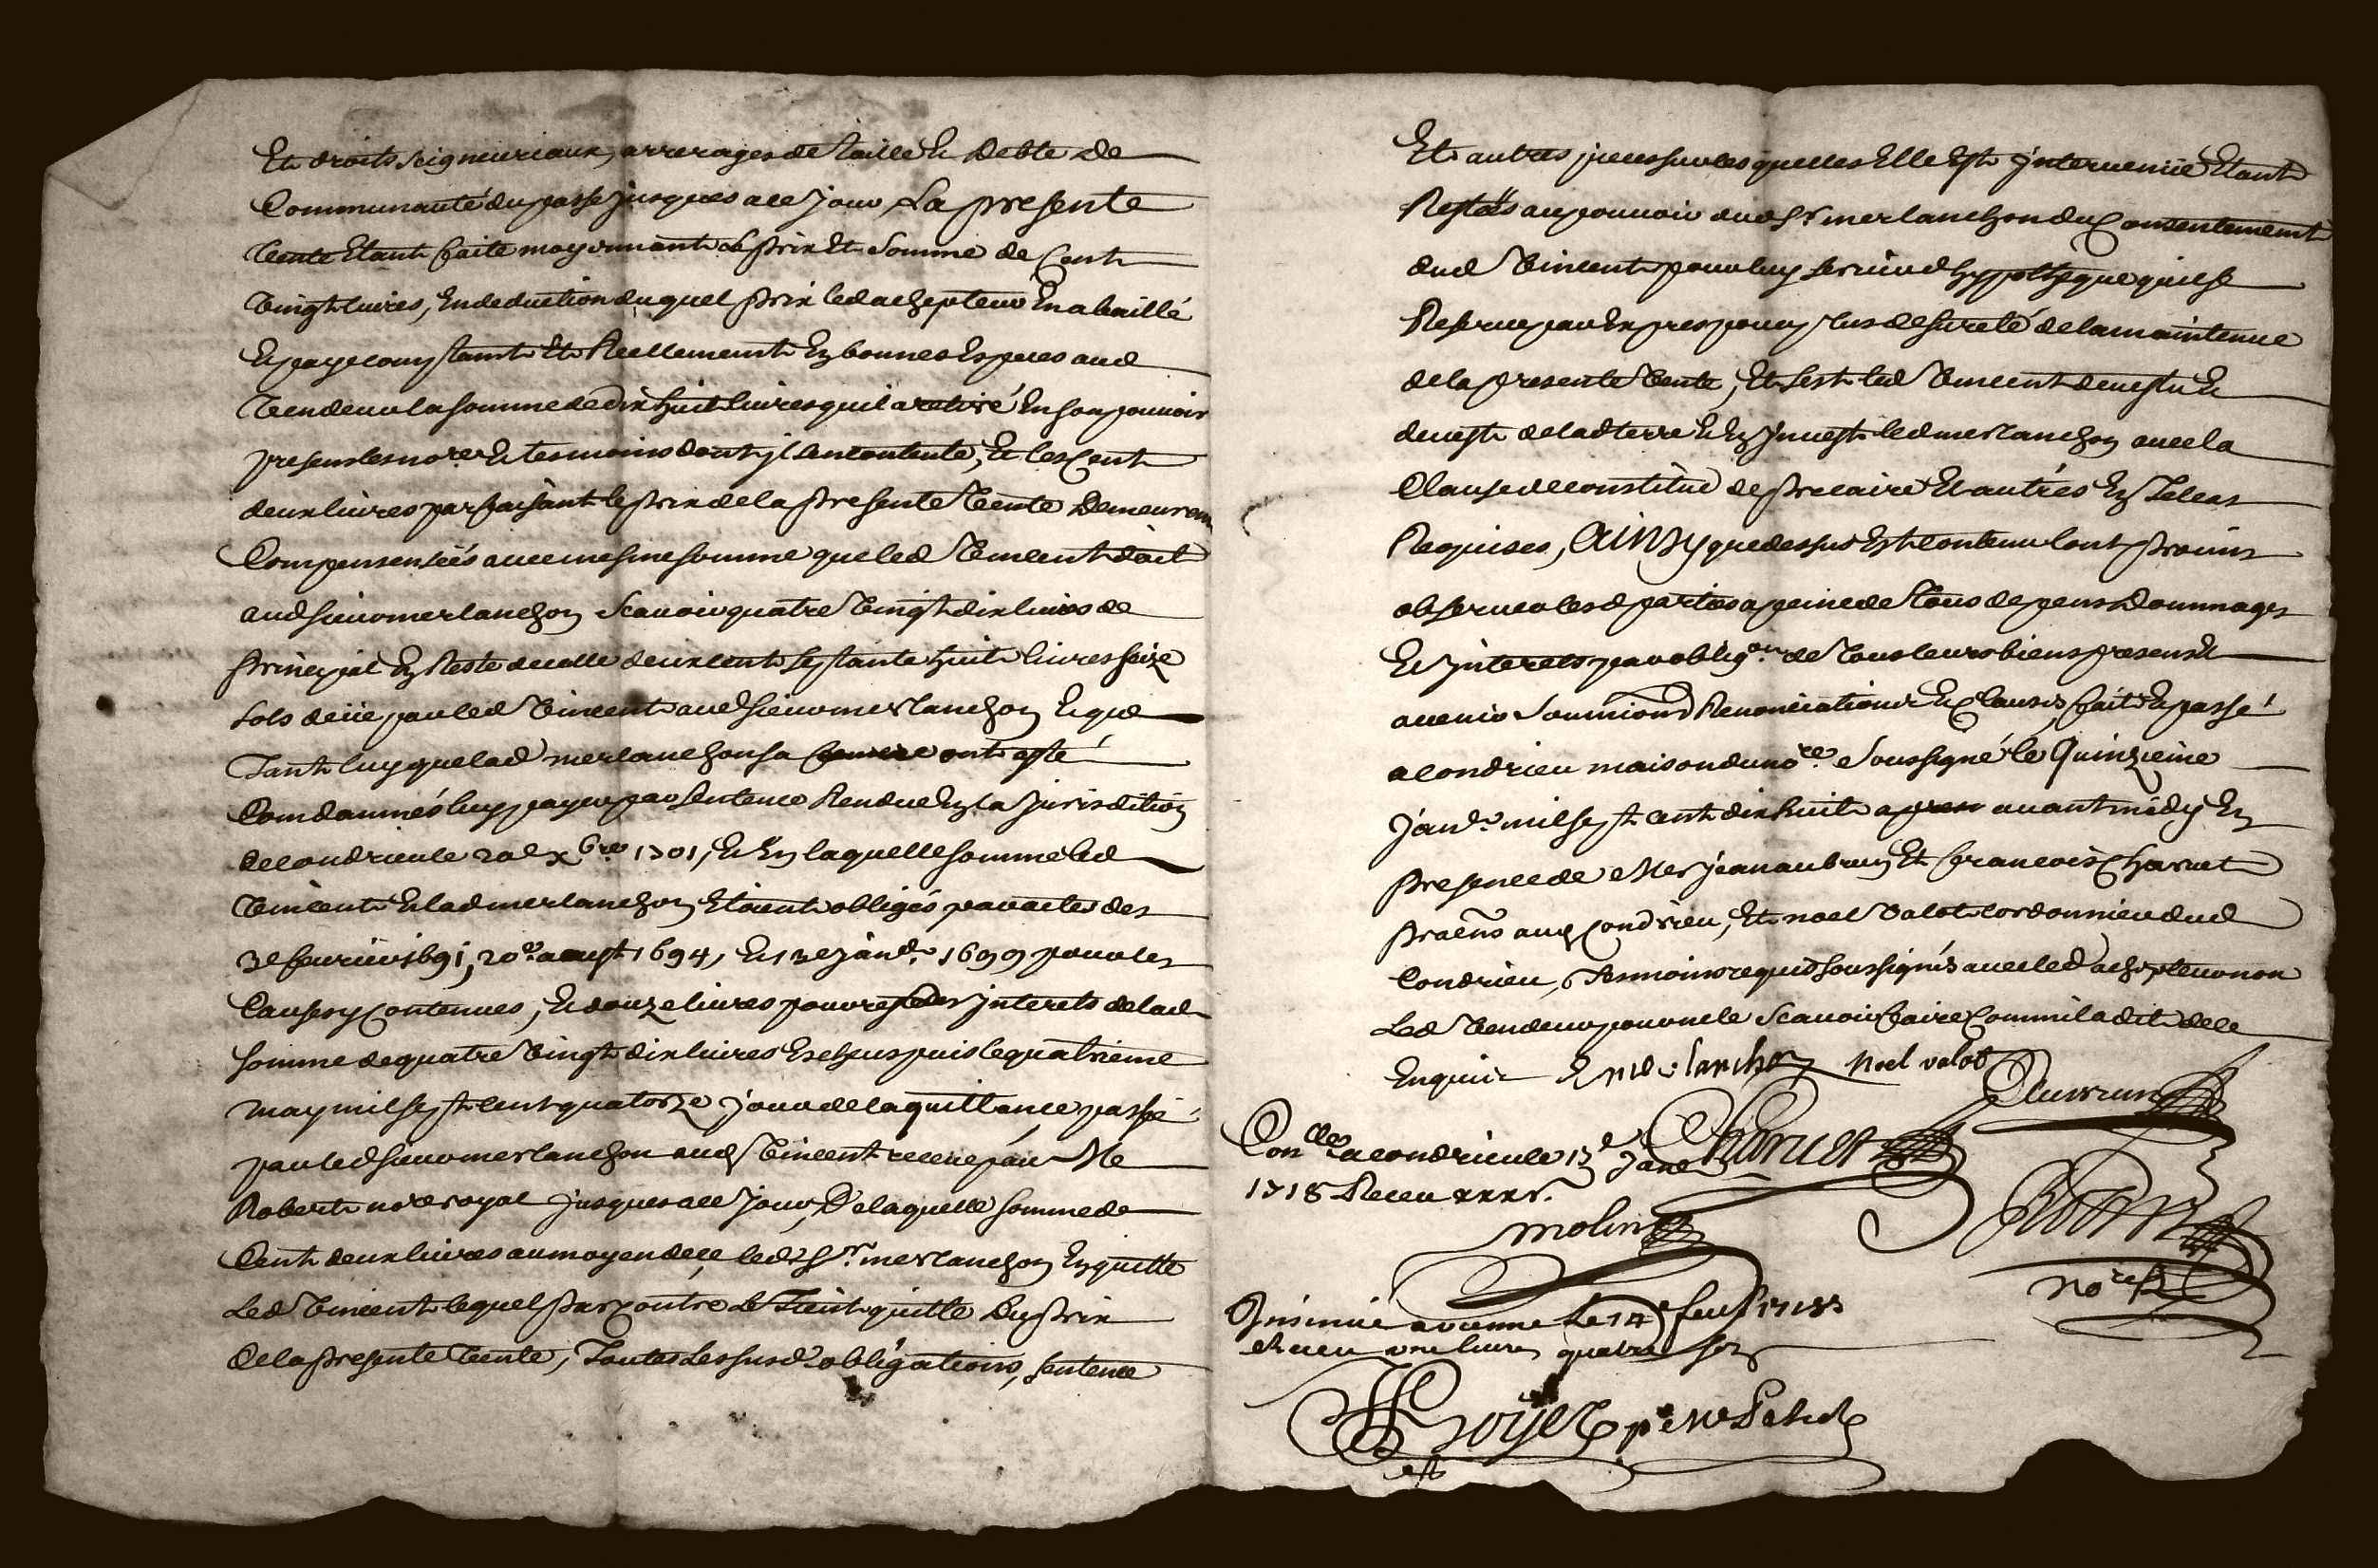 Et droits seigneuriaux, arrerages de taille & debte de
Communauté du passé jusques a ce jour, La presente
Vente Etant faite moyennant le prix Et somme de Cent
Vingt livres, En deduction duquel prix led achepteur En a baillé
Et payé comptamt Et Reellement En bonnes Especes aud
Vendeur la somme de dix huit livres quil a retiré En son pouvoir
presens les nore. Et tesmoins dont jl sen contente, Et les Cent
deux livres parfaisant le prix de la presente Vente Demeurent
Compensentéés avec mesme somme que led Vincent doit
aud sieur merlanchon Scavoir quatre Vingt dix livres de
Principal En Reste de celle deux cent septante huit livres seize
sols deüe par led Vincent aud sieur merlanchon Et que
Tant luy que lad merlanchon sa femme ont esté
Comdamnés luy payer par sentence Rendue En la jurisdition
de Condrieu le 20e xbre 1701, Et En laquelle somme led
Vincent Et lad merlanchon Etoient obligés par actes des
3e feurier 1691, 20e. aoust 1694, Et 13e janr. 1699 pour les
Causes y Contenues, Et douze livres pour reste des jnterets de lad
somme de quatre Vingt dix livres Escheus puis le quatrieme
may mil sept cent quatorze jour de la quittance passé
par led sieur merlanchon aud Vincent receue par Me
Robert nore royal jusques a ce jour, De laquelle somme de
Cent deux livres au moyen de ce led Sr. merlanchon En quitte
Led Vincent lequel Par Contre Le Tient quitte Du Prix
De la Presente Vente, Toutes Les susd. obligations, sentence
Et autres pieces sur lesquelles Elle Est jntervenüe Etant
Restéés au pouvoir dud Sr. merlanchon du Consentement
dud Vincent pour luy servir d'hypotheque quil se
Reserve par Expres pour plus de sureté de la maintenue
de la presente Vente, Et s'est led Vincent devestu &
devest de lad terre & En jnvest led merlanchon avec la
Clause de constitut de Precaire Et autrés En Tel cas
Requises, Ainsy que dessus Est contenu l'ont Promis
observer lesd parties a peine de Tous depens Dommages
Et jnterets par obligon. de Tous leurs biens presens &
avenir Soumions Renonciations Et Clauses, fait & passé
a Condrieu maison du nore. Soussigné le Quinzieme
janr. mil sept cent dix huit avant midy En
Presence de Mes jean aubrun Et francois Charvet
Praēns aud Condrieu, Et noel Valot cordonnier dud
Condrieu, Tesmoins requis soussignés avec led achepteur non
Led Vendeur pour ne le Scavoir faire Comm'il a dit de ce
Enquis. E merlanchon Noel valot
Charvet
Conlé a condrieu le 15e janr
1718 Receu xxxs.
molin
nore
Jnsinué a vienne le 14e feur 1718
& receu une livre quatre sols